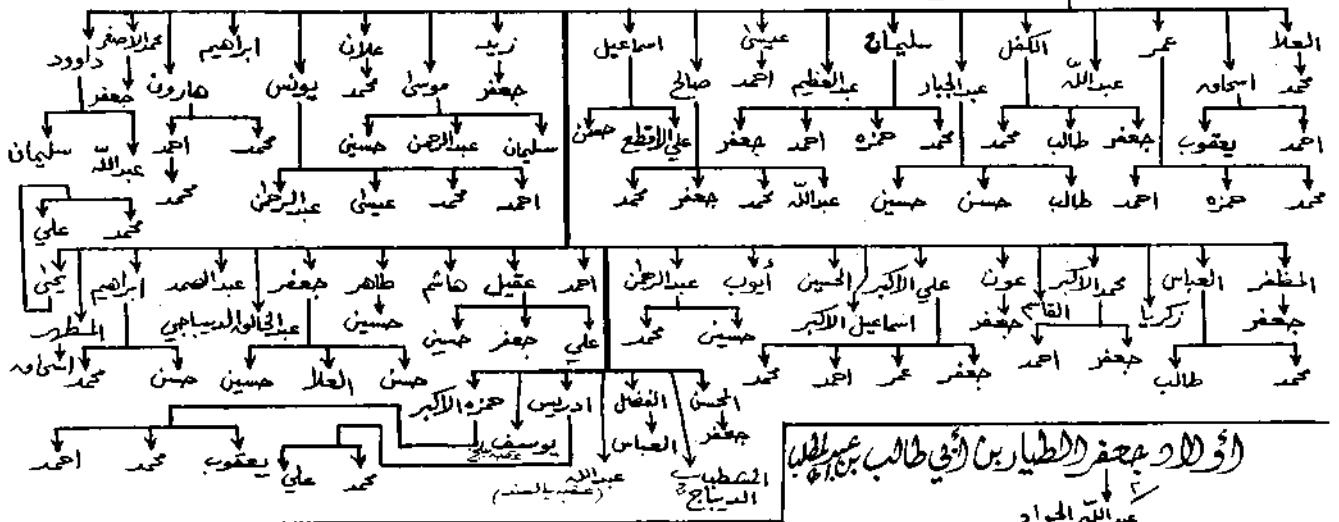 العلا عمر الكفل سليمان عيسى اسماعيل زيد علان ابراهيم محمد الاصغر داوود
محمد اسحاق عبدالله عبد الجبار عبد العظيم احمد صالح جعفر موسى محمد يونس هارون جعفر
احمد يعقوب جعفر طالب محمد محمد حمزه احمد جعفر علي الاقطع سليمان عبد الرحمن حسين محمد احمد عبدالله سليمان
محمد حمزه احمد طالب حسن حسين عبدالله محمد جعفر محمد احمد محمد عيسى عبد الرحمن محمد
محمد علي
المظفر العباس محمد الاكبر عون علي الاكبر الحسين أيوب عبد الرحمن احمد عقيل هاشم طاهر جعفر عبد الصمد ابراهيم يحيى
جعفر زكريا القاسم جعفر اسماعيل الاكبر حسين عبد الخالق الديباجي المطهر
حسين محمد علي جعفر حسين
محمد طالب جعفر احمد جعفر عمر احمد محمد حسن العلا حسين حسن محمد اسحاق
المحسن الفضل ادريس حمزه الاكبر
جعفر العباس يوسف
محمد علي يعقوب محمد احمد
عبدالله
(عقبه بالسند)
الديباج
أولاد جعفر الطيار بن أبي طالب بن عبد المطلب
عبدالله الجواد